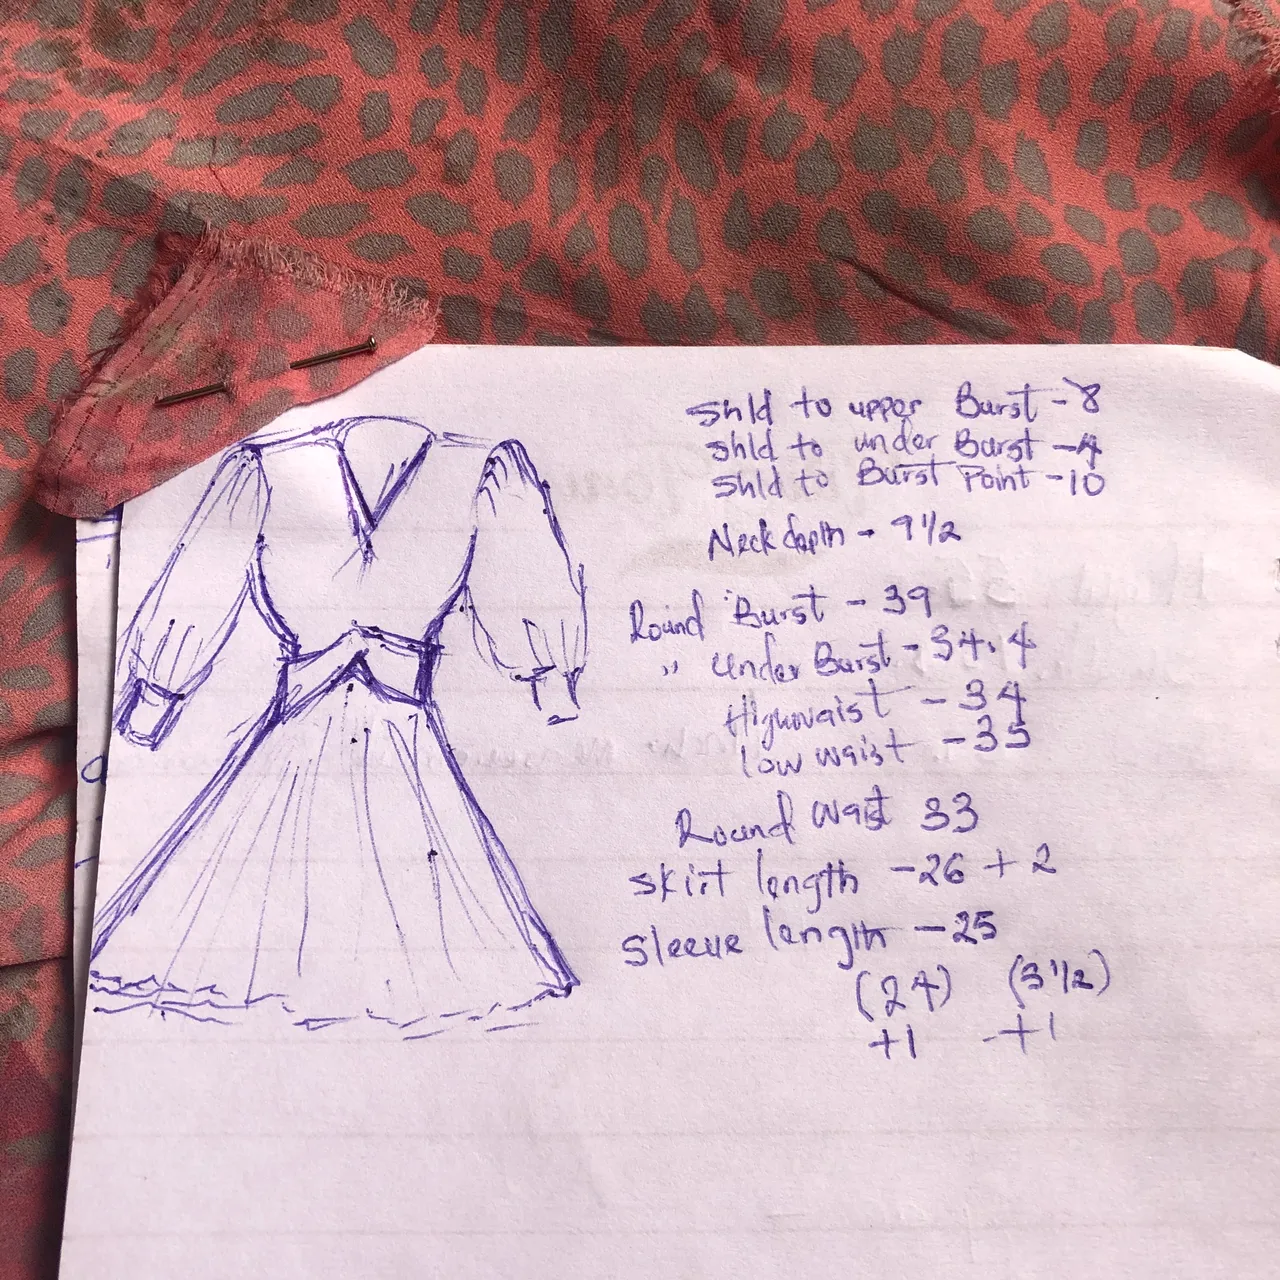 shld to upper Burst - 8
shld to under Burst - 4
shld to Burst Point - 10
Neck depth - 9 1/2
Round Burst - 39
,, under Burst - 34.4
Highwaist - 34
low waist - 35
Round waist 33
skirt length - 26 + 2
sleeve length - 25
(24) (3 1/2)
+1 +1